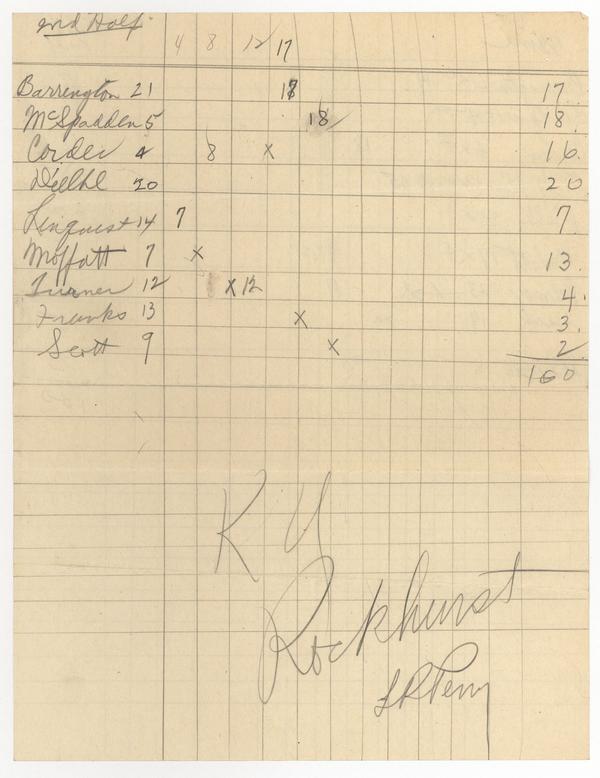 2nd Half.
4 8 12 17
Barrington 21 17 17.
McSpadden 5 18 18.
Corder 4 8 x 16.
Diehl 20 20
Linquist 14 7 7.
Moffatt 7 x 13.
Turner 12 x 12 4.
Franks 13 x 3.
Scott 9 x 2
100
K U
Rockhurst
L R Perry